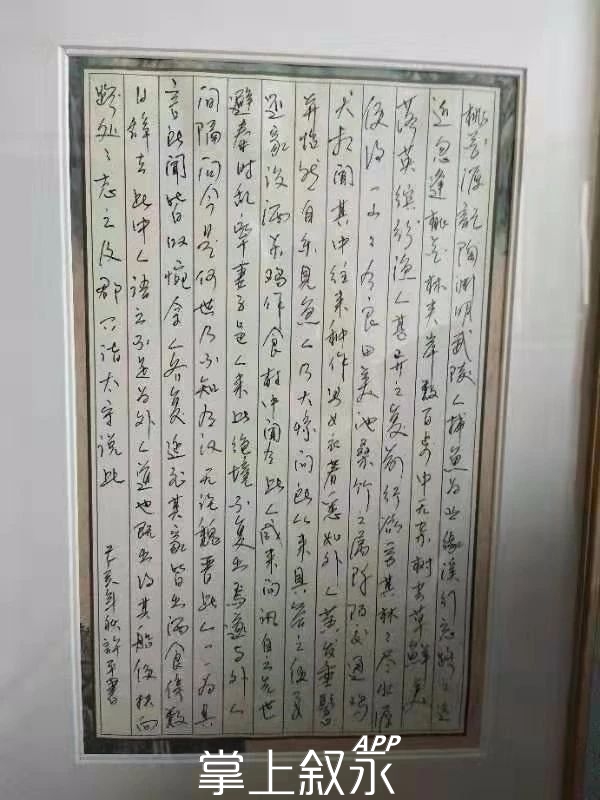 桃花源记陶渊明武陵人捕鱼为业缘溪行忘路之远
近忽逢桃花林夹岸数百步中无杂树芳草鲜美
落英缤纷渔人甚异之复前行欲穷其林々尽水源
便得一山々有良田美池桑竹之属阡陌交通鸡
犬相闻其中往来种作男女衣著悉如外人黄发垂髫
并怡然自乐见鱼人乃大惊问所从来具答之便要
还家设酒杀鸡作食村中闻有此人咸来问讯自云先世
避秦时乱率妻子邑人来此绝境不复出焉遂与外人
间隔问今是何世乃不知有汉无论魏晋此人一一为具
言所闻皆叹惋余人各复延至其家皆出酒食停数
日辞去此中人语云不足为外人道也既出得其船便扶向
路处々志之及郡下诣太守说此
己亥年秋许平书
掌上叙永APP